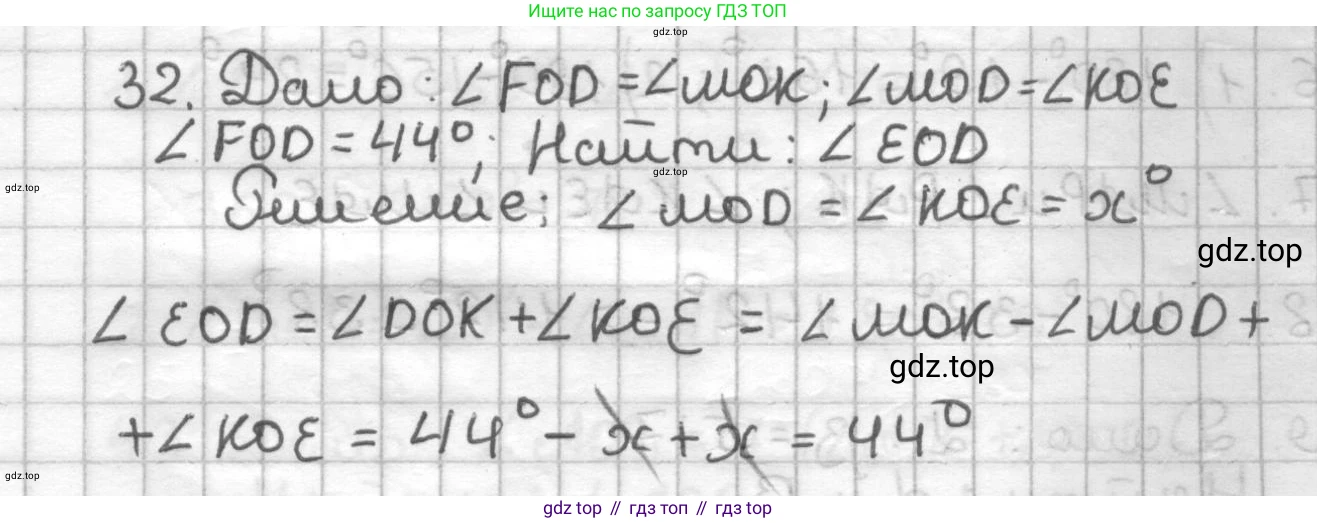 Ищите нас по запросу ГДЗ ТОП
gdz.top
32. Дано: ∠FOD = ∠MOK; ∠MOD = ∠KOE
∠FOD = 44°; Найти: ∠EOD
gdz.top
gdz.top
Решение: ∠MOD = ∠KOE = x°
gdz.top
∠EOD = ∠DOK + ∠KOE = ∠MOK - ∠MOD +
gdz.top
+ ∠KOE = 44° - x + x = 44°
gdz.top
gdz.top // гдз топ // gdz.top